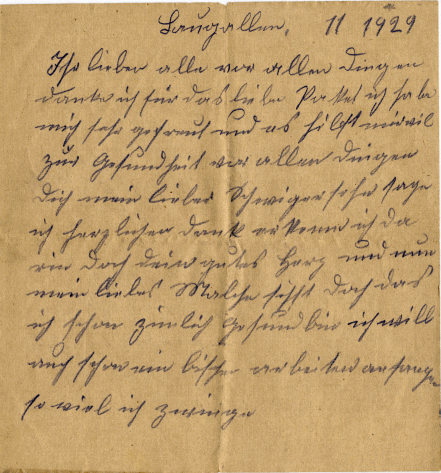 Laugallen, 11 1929
Ihr lieben alle vor allen Dingen
danke ich für das liebe Paket ich habe
mich sehr gefreut und es hilft mir vil
zur Gesundheit vor allen Dingen
Dich mein lieber Schwigersohn sage
ich herzlichen dank erkenne ich da
rin doch dein gutes Herz und nun
mein liebes Malche sihst doch das
ich schon zimlich gesund bin ich will
auch schon ein bischen arbeiten anfangen
so viel ich zwinge